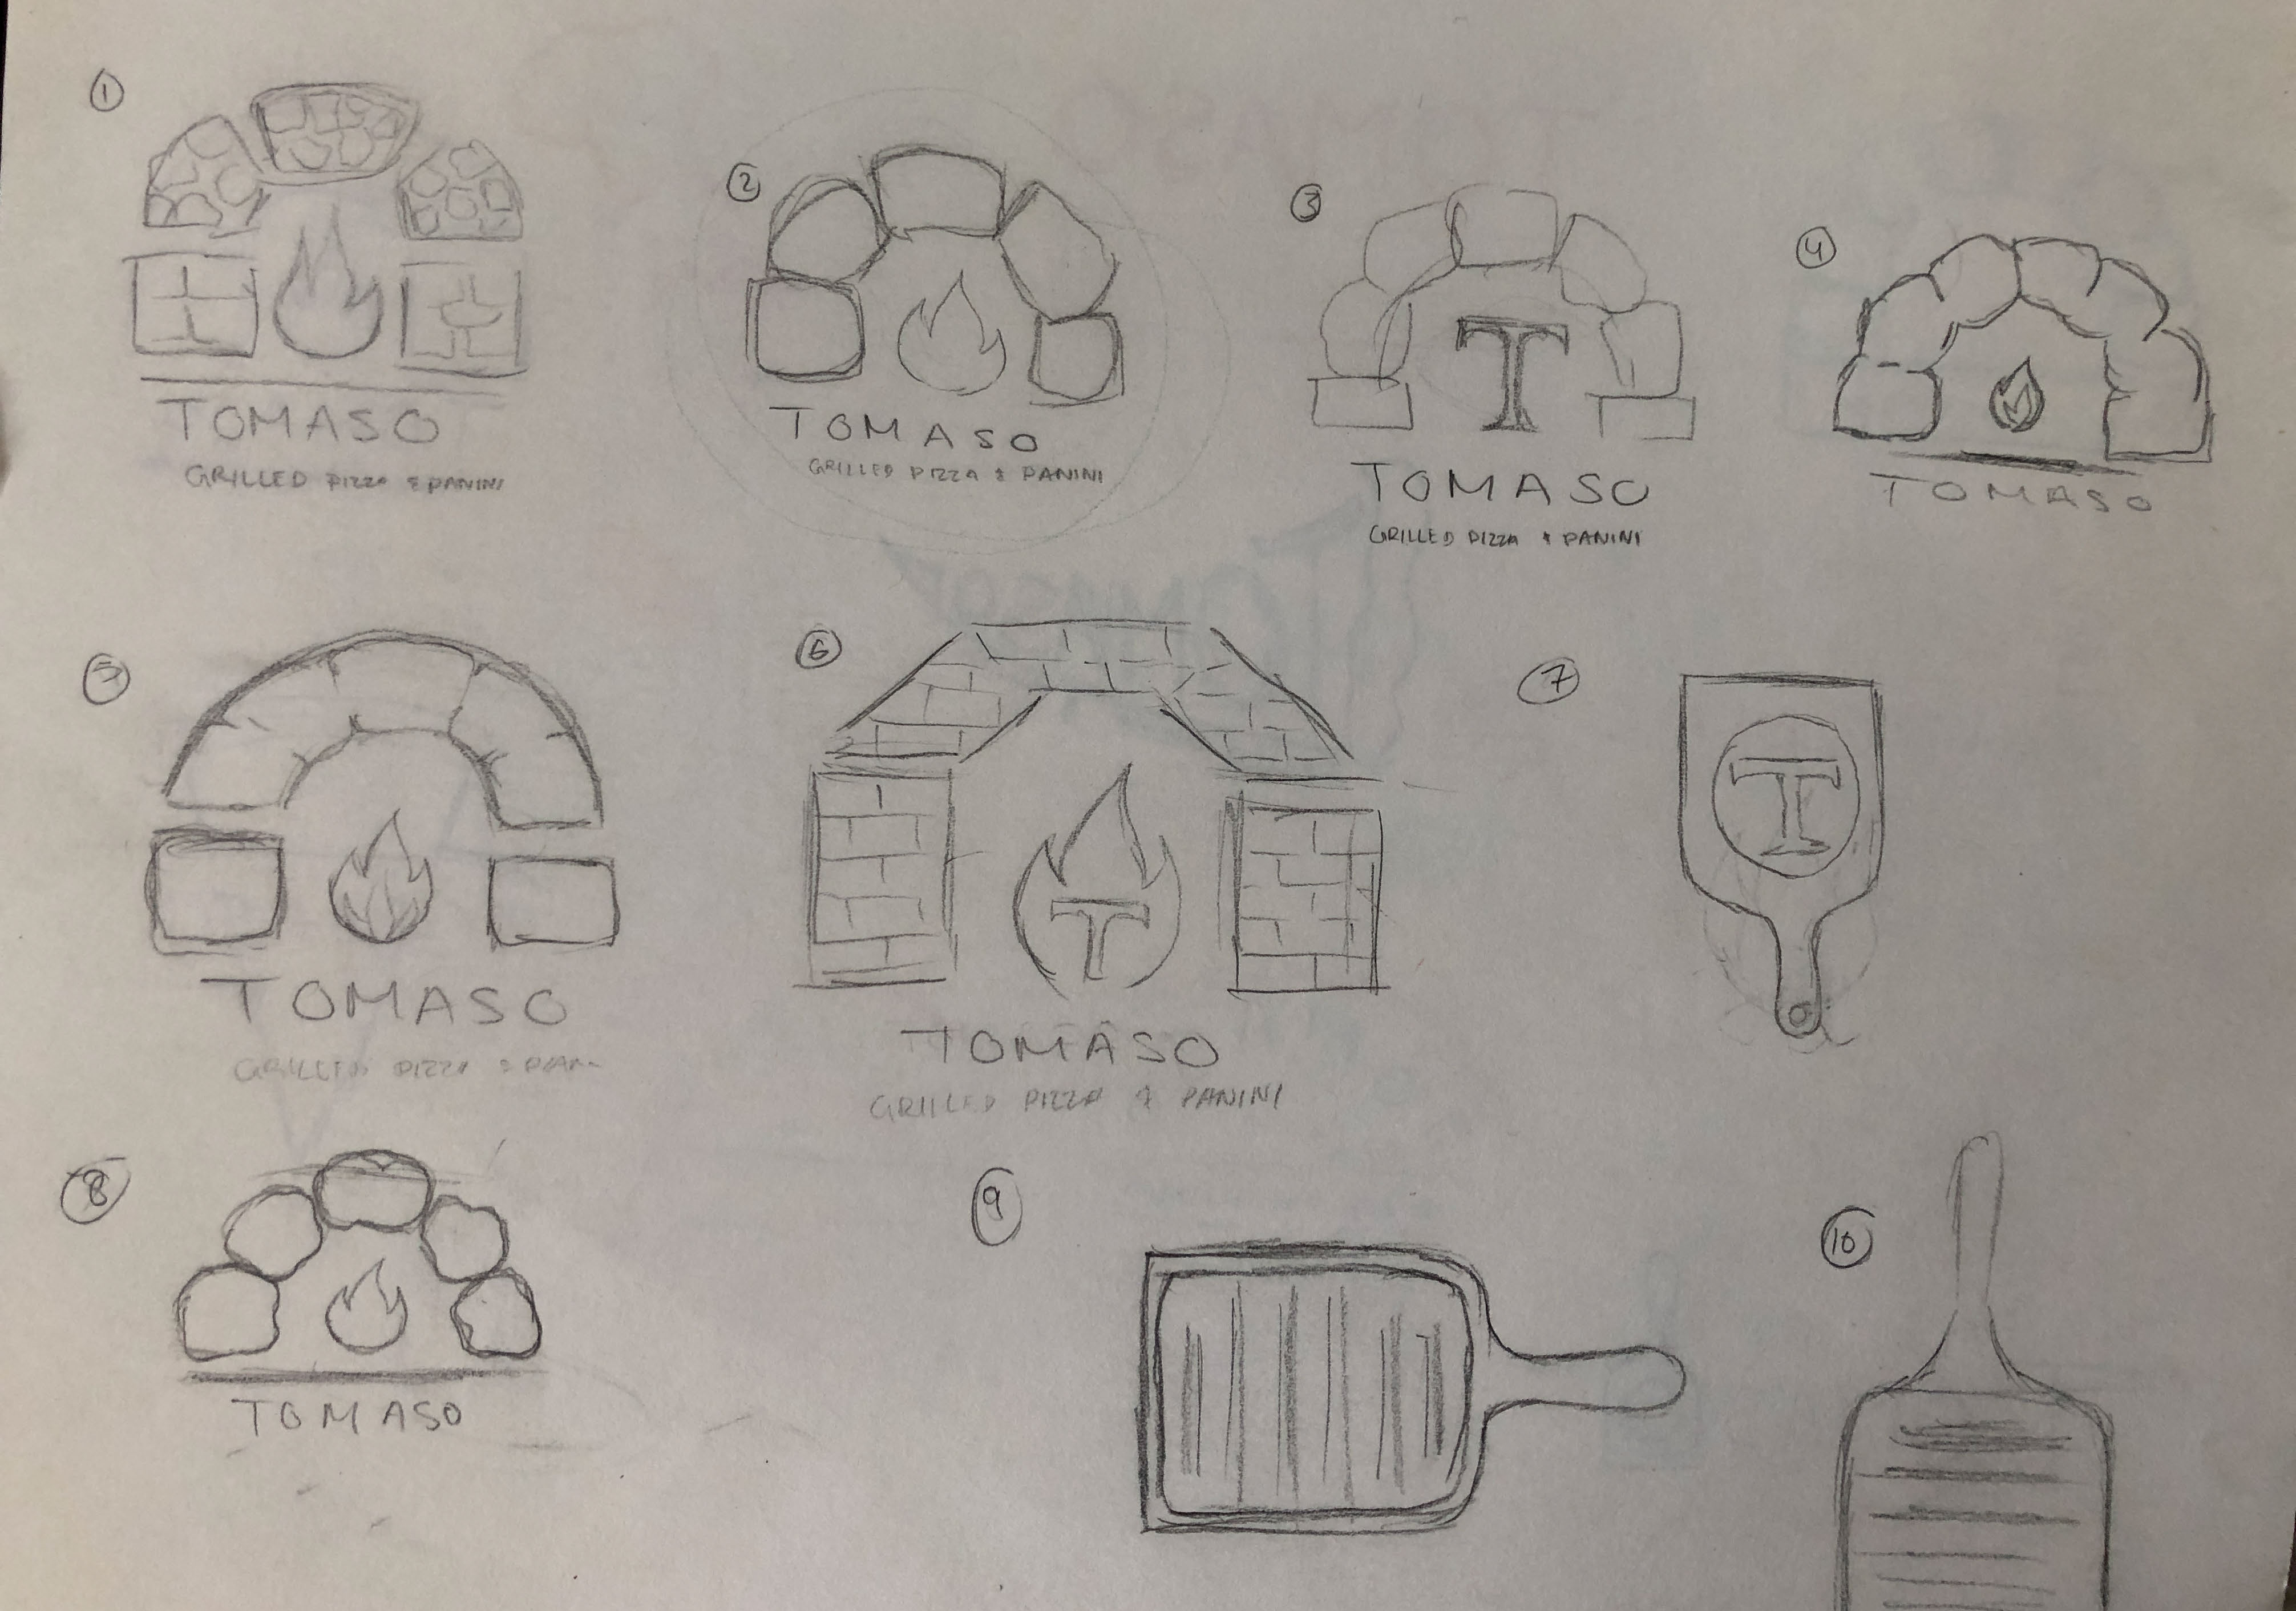 1
TOMASO
GRILLED PIZZA & PANINI
2
TOMASO
GRILLED PIZZA & PANINI
3
T
TOMASO
GRILLED PIZZA & PANINI
4
TOMASO
5
TOMASO
GRILLED PIZZA & PAN
6
T
TOMASO
GRILLED PIZZA & PANINI
7
T
8
TOMASO
9
10